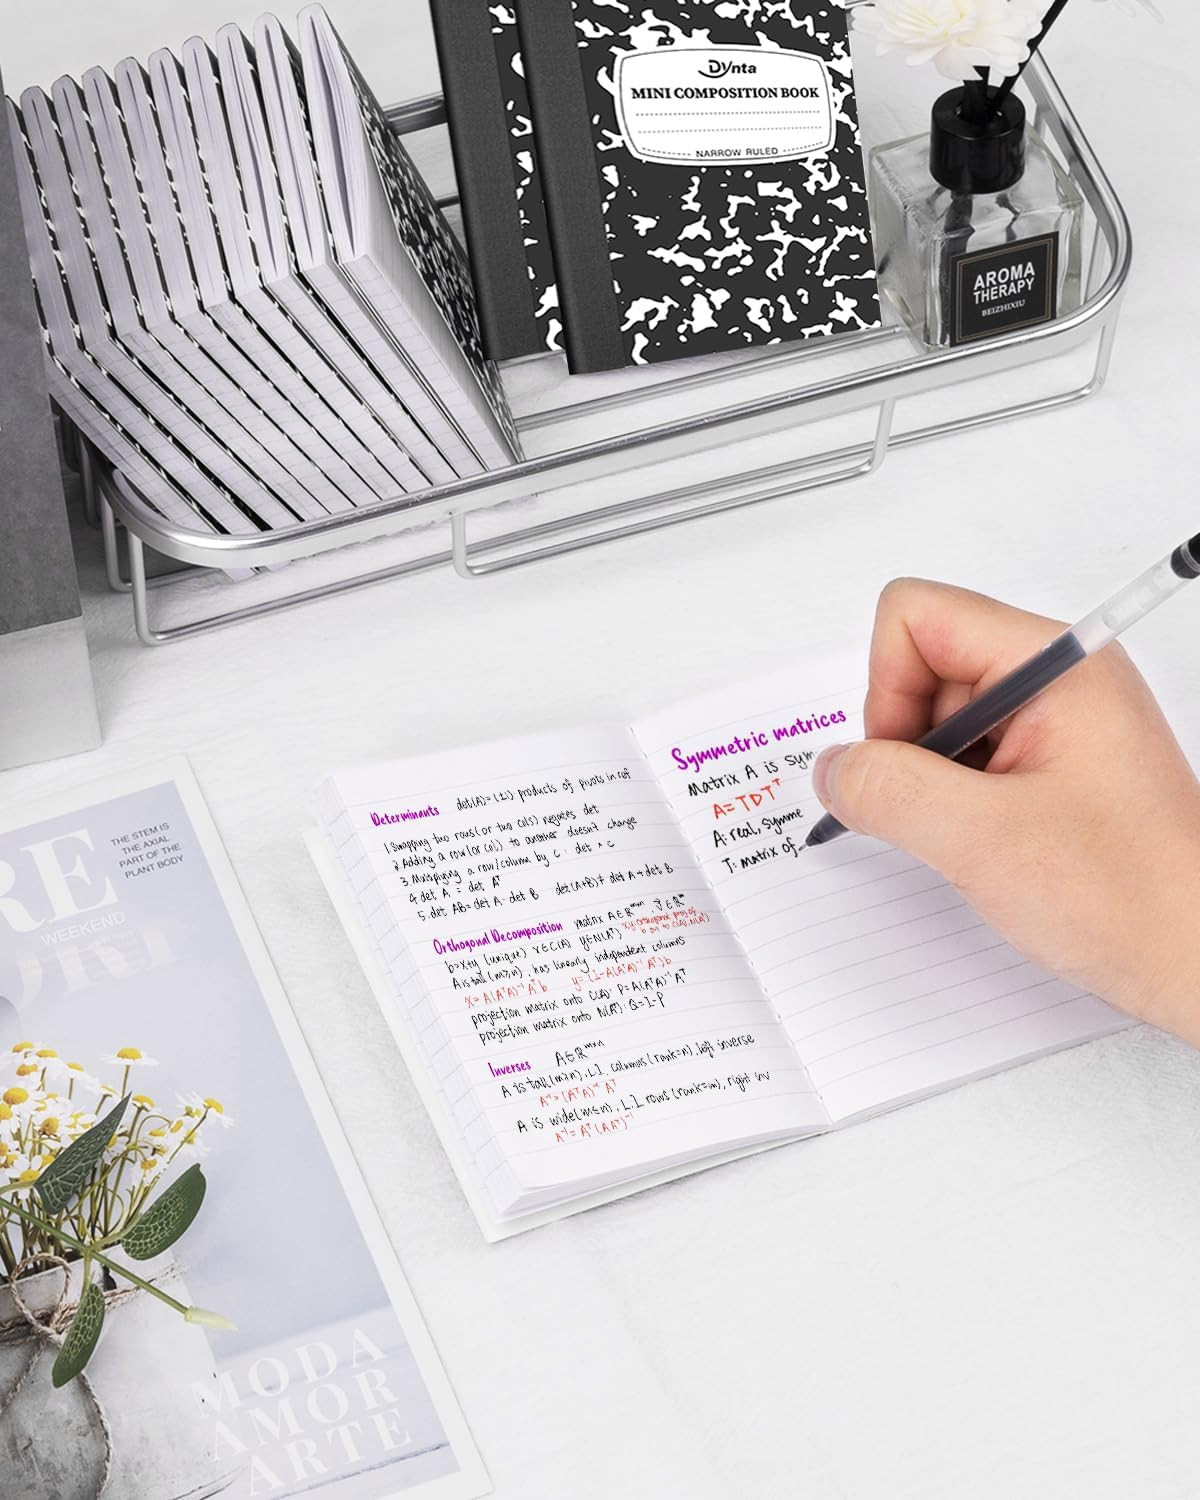 Dynta
MINI COMPOSITION BOOK
NARROW RULED
AROMA
THERAPY
BEIZHIXIU
RE
THE STEM IS
THE AXIAL
PART OF THE
PLANT BODY
WEEKEND
Determinants det(A)=(±1) products of pivots in ref
1 Swapping two rows (or two cols) negates det
2 Adding a row (or col) to another doesn't change
3. Multiplying a row/column by c : det × c
4. det A = det Aᵀ
5. det AB= det A · det B det(A+B)≠ det A + det B
Orthogonal Decomposition matrix A∈ℝᵐˣⁿ, v⃗∈ℝᵐ
b=x+y (unique) x∈C(A) y∈N(Aᵀ) x,y: orthogonal proj of
b on to C(A), N(Aᵀ)
A is tall (m≥n), has linearly independent columns
x= A(AᵀA)⁻¹Aᵀb y=(I-A(AᵀA)⁻¹Aᵀ)b
projection matrix onto C(A): P=A(AᵀA)⁻¹Aᵀ
projection matrix onto N(Aᵀ): Q=I-P
Inverses A∈ℝᵐˣⁿ
A is tall (m≥n), L.I. columns (rank=n), left inverse
A⁻¹=(AᵀA)⁻¹Aᵀ
A is wide (m≤n), L.I. rows (rank=m), right inv
A⁻¹=Aᵀ(AAᵀ)⁻¹
Symmetric matrices
Matrix A is sym
A=TDTᵀ
A: real, symme
T: matrix of
MODA
AMOR
ARTE